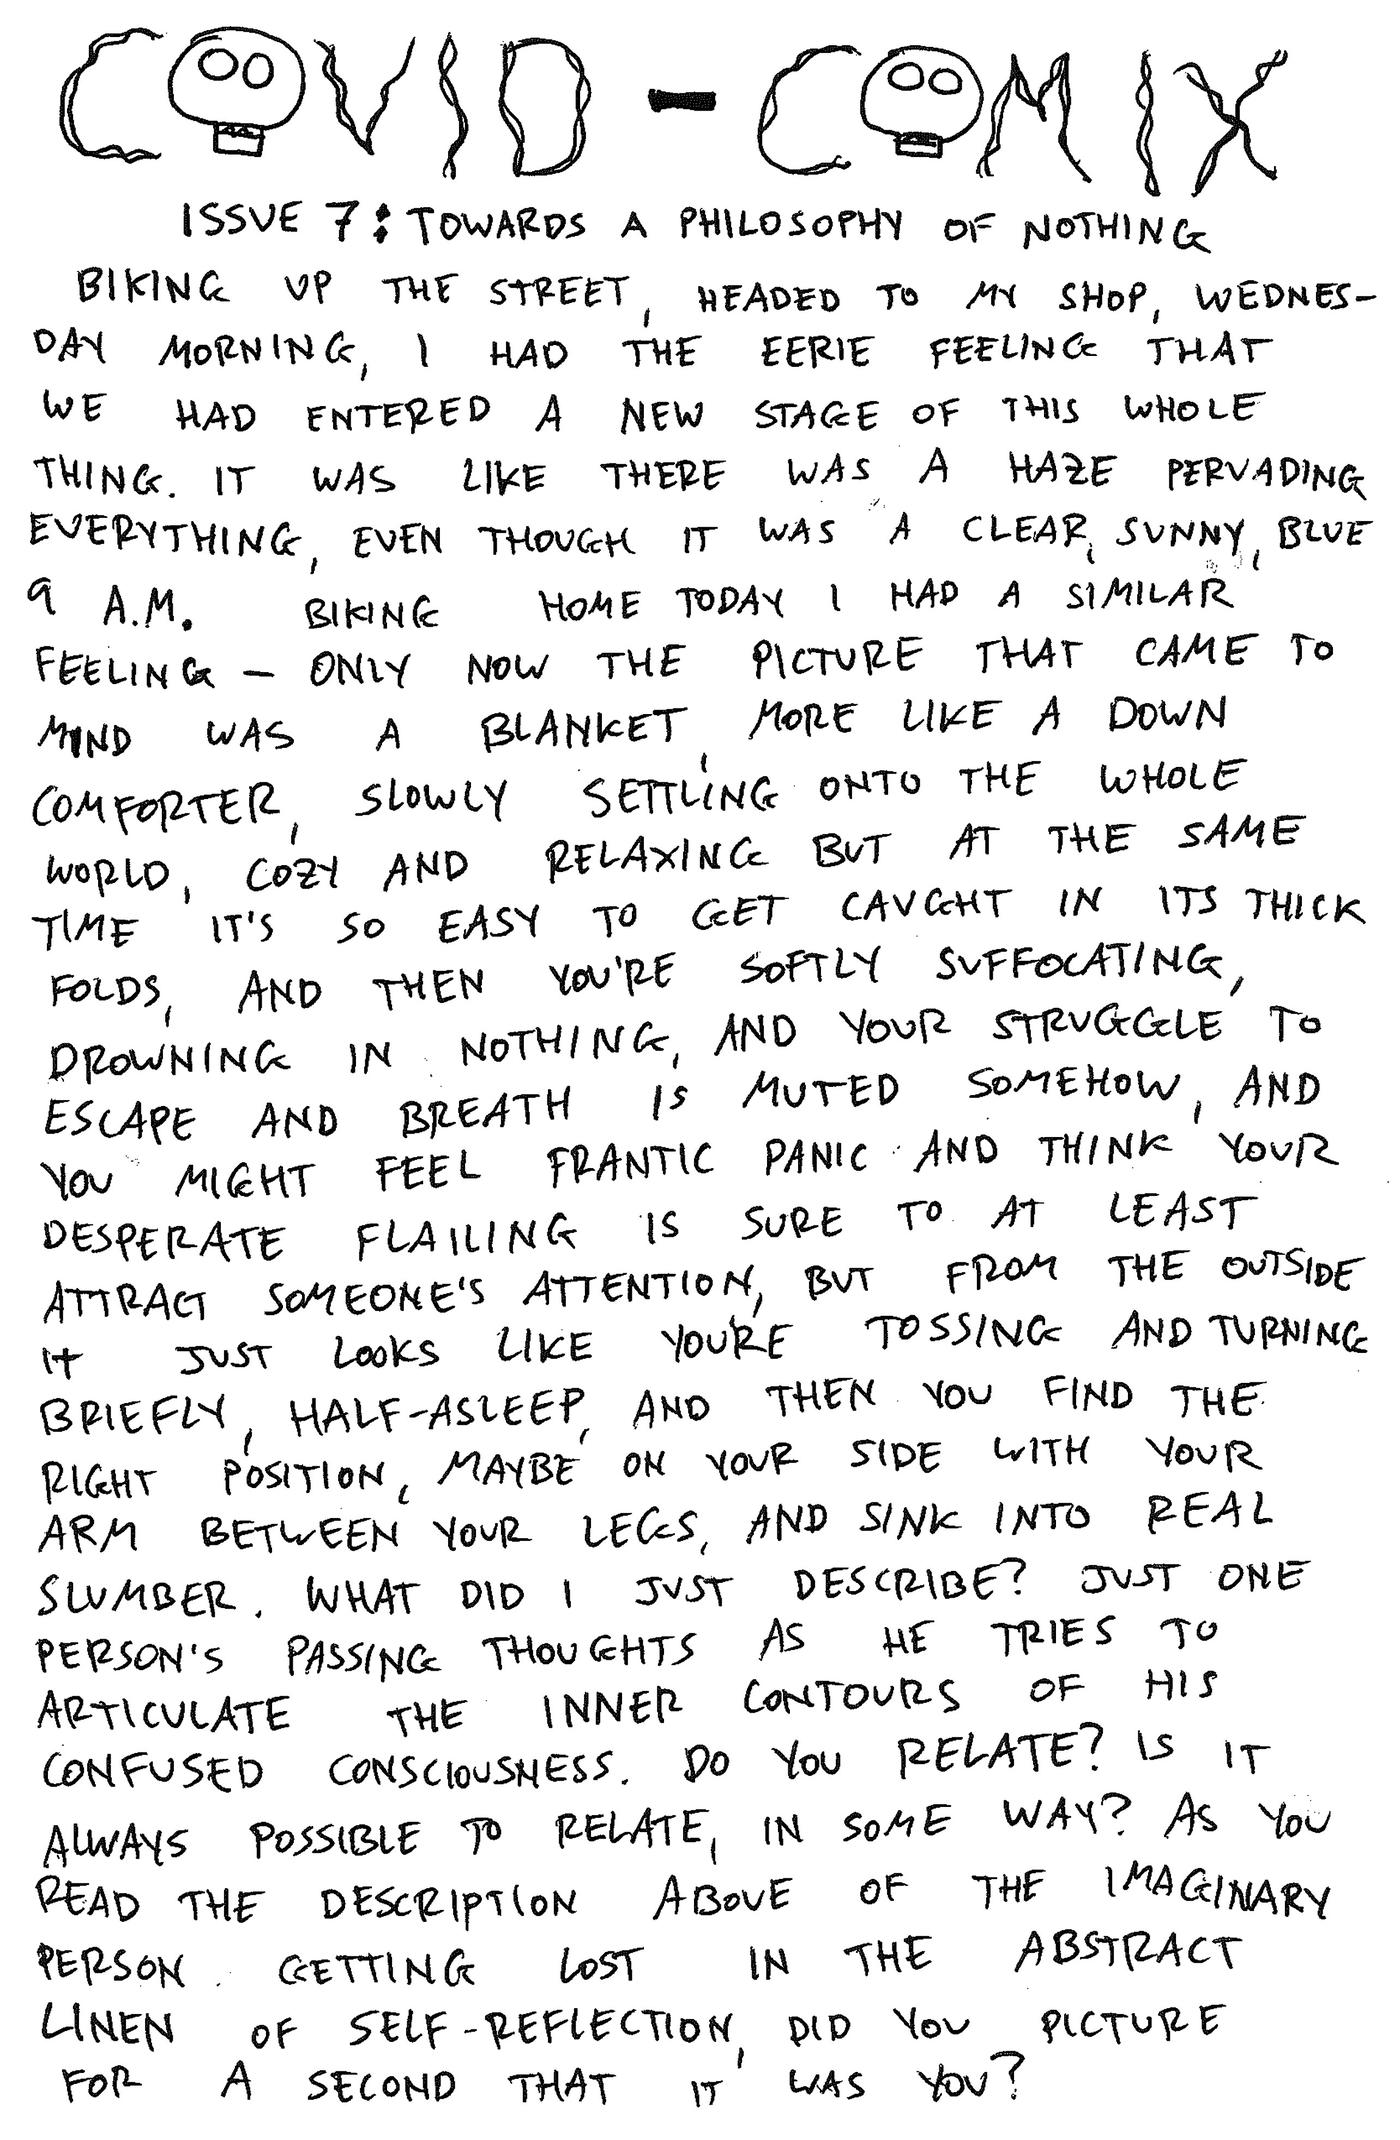 COVID-COMIX
ISSUE 7: TOWARDS A PHILOSOPHY OF NOTHING
BIKING UP THE STREET, HEADED TO MY SHOP, WEDNES-
DAY MORNING, I HAD THE EERIE FEELING THAT
WE HAD ENTERED A NEW STAGE OF THIS WHOLE
THING. IT WAS LIKE THERE WAS A HAZE PERVADING
EVERYTHING, EVEN THOUGH IT WAS A CLEAR, SUNNY, BLUE
9 A.M. BIKING HOME TODAY I HAD A SIMILAR
FEELING – ONLY NOW THE PICTURE THAT CAME TO
MIND WAS A BLANKET, MORE LIKE A DOWN
COMFORTER, SLOWLY SETTLING ONTO THE WHOLE
WORLD, COZY AND RELAXING BUT AT THE SAME
TIME IT'S SO EASY TO GET CAUGHT IN ITS THICK
FOLDS, AND THEN YOU'RE SOFTLY SUFFOCATING,
DROWNING IN NOTHING, AND YOUR STRUGGLE TO
ESCAPE AND BREATH IS MUTED SOMEHOW, AND
YOU MIGHT FEEL FRANTIC PANIC AND THINK YOUR
DESPERATE FLAILING IS SURE TO AT LEAST
ATTRACT SOMEONE'S ATTENTION, BUT FROM THE OUTSIDE
IT JUST LOOKS LIKE YOU'RE TOSSING AND TURNING
BRIEFLY, HALF-ASLEEP, AND THEN YOU FIND THE
RIGHT POSITION, MAYBE ON YOUR SIDE WITH YOUR
ARM BETWEEN YOUR LEGS, AND SINK INTO REAL
SLUMBER. WHAT DID I JUST DESCRIBE? JUST ONE
PERSON'S PASSING THOUGHTS AS HE TRIES TO
ARTICULATE THE INNER CONTOURS OF HIS
CONFUSED CONSCIOUSNESS. DO YOU RELATE? IS IT
ALWAYS POSSIBLE TO RELATE, IN SOME WAY? AS YOU
READ THE DESCRIPTION ABOVE OF THE IMAGINARY
PERSON GETTING LOST IN THE ABSTRACT
LINEN OF SELF-REFLECTION, DID YOU PICTURE
FOR A SECOND THAT IT WAS YOU?